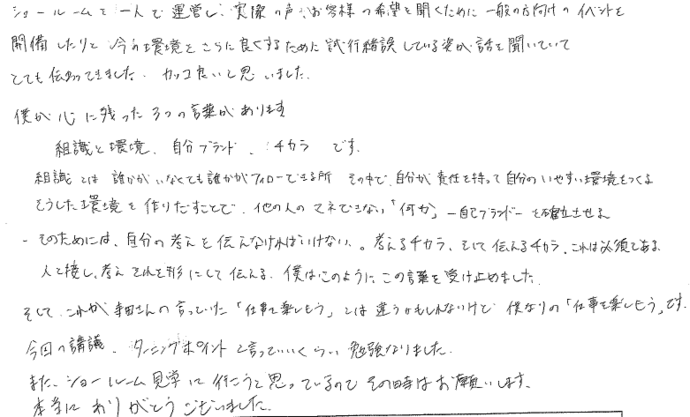 ショールームを一人で運営し、実際の声、お客様の希望を聞くために一般の方向けのイベントを
開催したりと今の環境をさらに良くするために試行錯誤している姿が話を聞いていて
とても伝わってきました。カッコ良いと思いました。
僕が心に残った3つの言葉があります
組織と環境、自分ブランド、チカラ です。
組織とは誰かがいなくても誰かがフォローできる所 その中で、自分が責任を持って自分のいやすい環境をつくる
そうした環境を作りだすことで、他の人のマネできない「何か」―自己ブランド―を確立させよ
-そのためには、自分の考えを伝えなければいけない。考えるチカラ、そして伝えるチカラ、これは必須である
人と接し、考え それを形にして伝える。僕はこのようにこの言葉を受け止めました。
そして、これが寺田さんの言っていた「仕事を楽しもう」とは違うかもしれないけど 僕なりの「仕事を楽しもう」です。
今回の講議、ターニングポイントと言っていいくらい勉強なりました。
また、ショールーム見学に行こうと思っているのでその時はお願いします。
本当にありがとうございました。